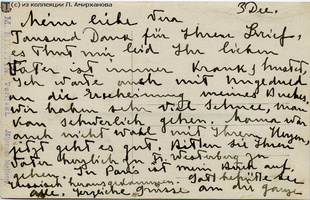 (с) из коллекции Л. Амирханова
3 Dec.
Meine liebe Vera
Tausend Dank für Ihren Brief,
es thut mir leid Ihr lieber
Vater ist immer krank & hustet.
Ich warte auch mit Ungeduld
an die Erscheinung meines Buches.
Wir haben sehr viel Schnee, man
kan schwerlich gehen. Mama war
auch nicht wohl mit Ihrem Herzen,
jetzt geht es gut. Bitten sie Ihren
Vater herzlich zu Dr. Westenberg zu
gehen. In Paris ist mein Buch auf
russisch herausgekommen. Gott behütte sie
alle. Herzliche Grüsse an die ganze